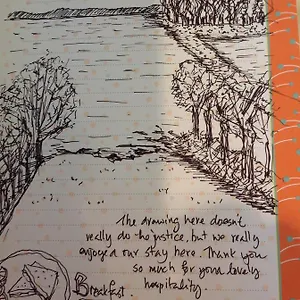 The drawing here doesn't
really do it justice, but we really
enjoyed our stay here. Thank you
so much for your lovely
hospitality.
Breakfast.